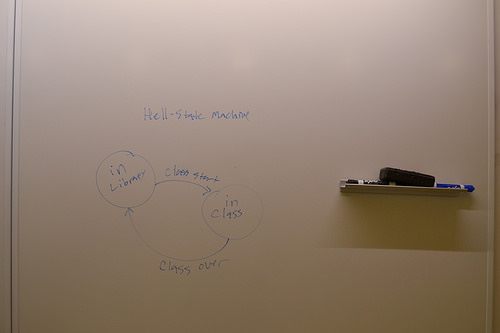 Hell-State Machine
in
Library
Class start
in
Class
Class over